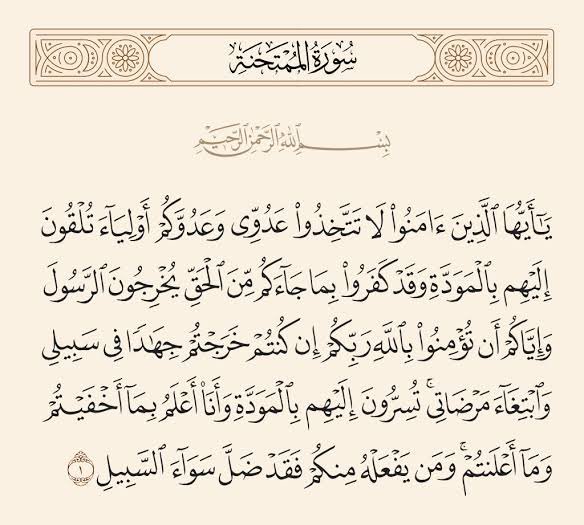 سُورَةُ الْمُمْتَحَنَةِ
بِسْمِ ٱللَّهِ ٱلرَّحْمَٰنِ ٱلرَّحِيمِ
يَـٰٓأَيُّهَا ٱلَّذِينَ ءَامَنُوا۟ لَا تَتَّخِذُوا۟ عَدُوِّى وَعَدُوَّكُمْ أَوْلِيَآءَ تُلْقُونَ
إِلَيْهِم بِٱلْمَوَدَّةِ وَقَدْ كَفَرُوا۟ بِمَا جَآءَكُم مِّنَ ٱلْحَقِّ يُخْرِجُونَ ٱلرَّسُولَ
وَإِيَّاكُمْ أَن تُؤْمِنُوا۟ بِٱللَّهِ رَبِّكُمْ إِن كُنتُمْ خَرَجْتُمْ جِهَـٰدًا فِى سَبِيلِى
وَٱبْتِغَآءَ مَرْضَاتِى ۚ تُسِرُّونَ إِلَيْهِم بِٱلْمَوَدَّةِ وَأَنَا۠ أَعْلَمُ بِمَآ أَخْفَيْتُمْ
وَمَآ أَعْلَنتُمْ ۚ وَمَن يَفْعَلْهُ مِنكُمْ فَقَدْ ضَلَّ سَوَآءَ ٱلسَّبِيلِ ١